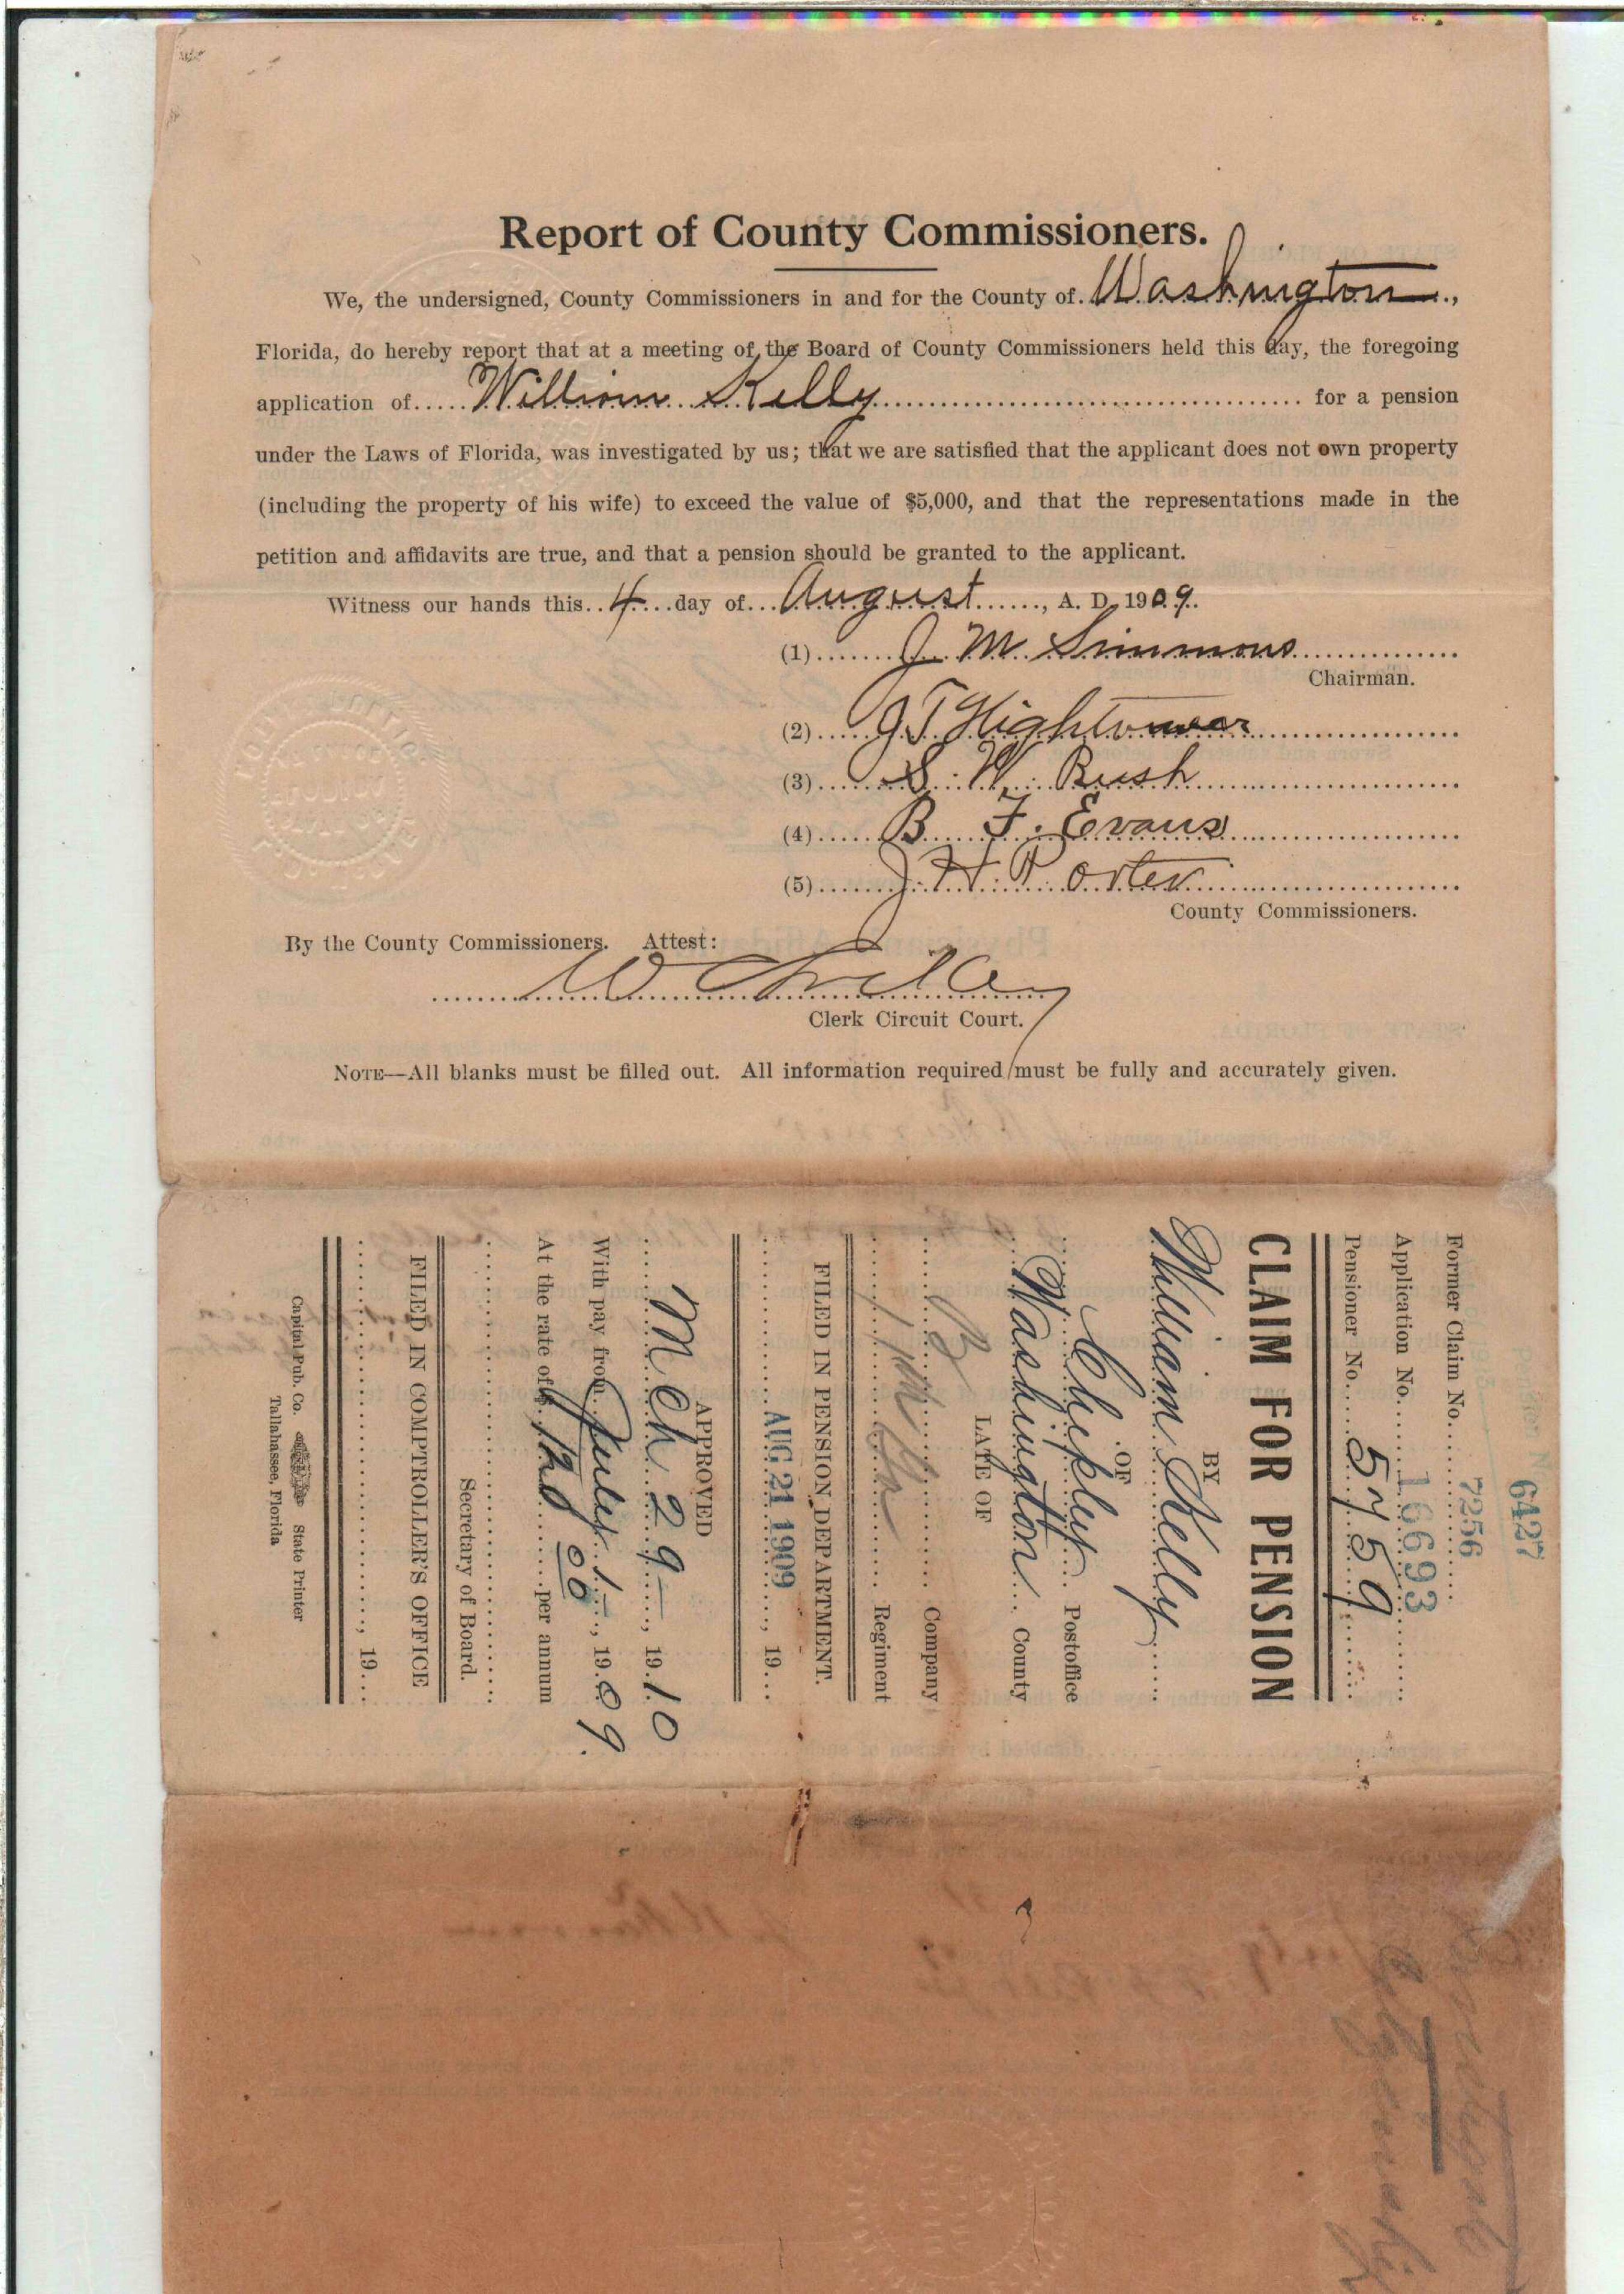 Report of County Commissioners.
We, the undersigned, County Commissioners in and for the County of. Washington.,
Florida, do hereby report that at a meeting of the Board of County Commissioners held this day, the foregoing
application of..... William Kelly .......... for a pension
under the Laws of Florida, was investigated by us; that we are satisfied that the applicant does not own property
(including the property of his wife) to exceed the value of $5,000, and that the representations made in the
petition and affidavits are true, and that a pension should be granted to the applicant.
Witness our hands this.. 4 ...day of... August ......, A. D. 1909.
(1) J. M. Simmons
Chairman.
(2) J T Hightower
(3) S. W. Bush
(4) B. F. Evans
(5) J. H. Porter
County Commissioners.
By the County Commissioners. Attest:
Clerk Circuit Court.
NOTE—All blanks must be filled out. All information required must be fully and accurately given.
6427
Former Claim No. 7256
Application No. 16693
Pensioner No. 5759
CLAIM FOR PENSION
BY
William Kelly
OF
Chipley Postoffice
Washington County
LATE OF
B Company
Regiment
FILED IN PENSION DEPARTMENT.
AUG 21 1909, 19
APPROVED
Mch 29, 1910
With pay from July 1, 1909.
At the rate of $ 120 00 per annum
Secretary of Board.
FILED IN COMPTROLLER'S OFFICE
, 19
Capital Pub. Co. State Printer
Tallahassee, Florida